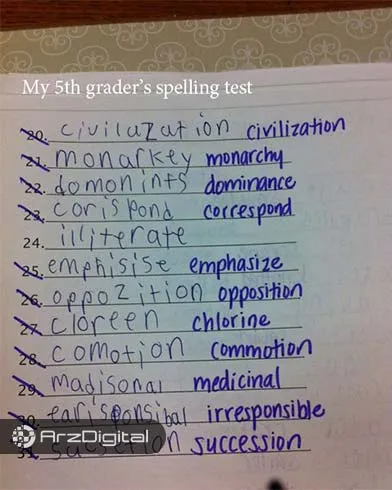 My 5th grader's spelling test
20. civiluzation civilization
21. monarkey monarchy
22. domonints dominance
23. corispond correspond
24. illiterate
25. emphisise emphasize
26. oppozition opposition
27. cloreen chlorine
28. comotion commotion
29. madisonal medicinal
30. earisponsibal irresponsible
ArzDigital
31. succession